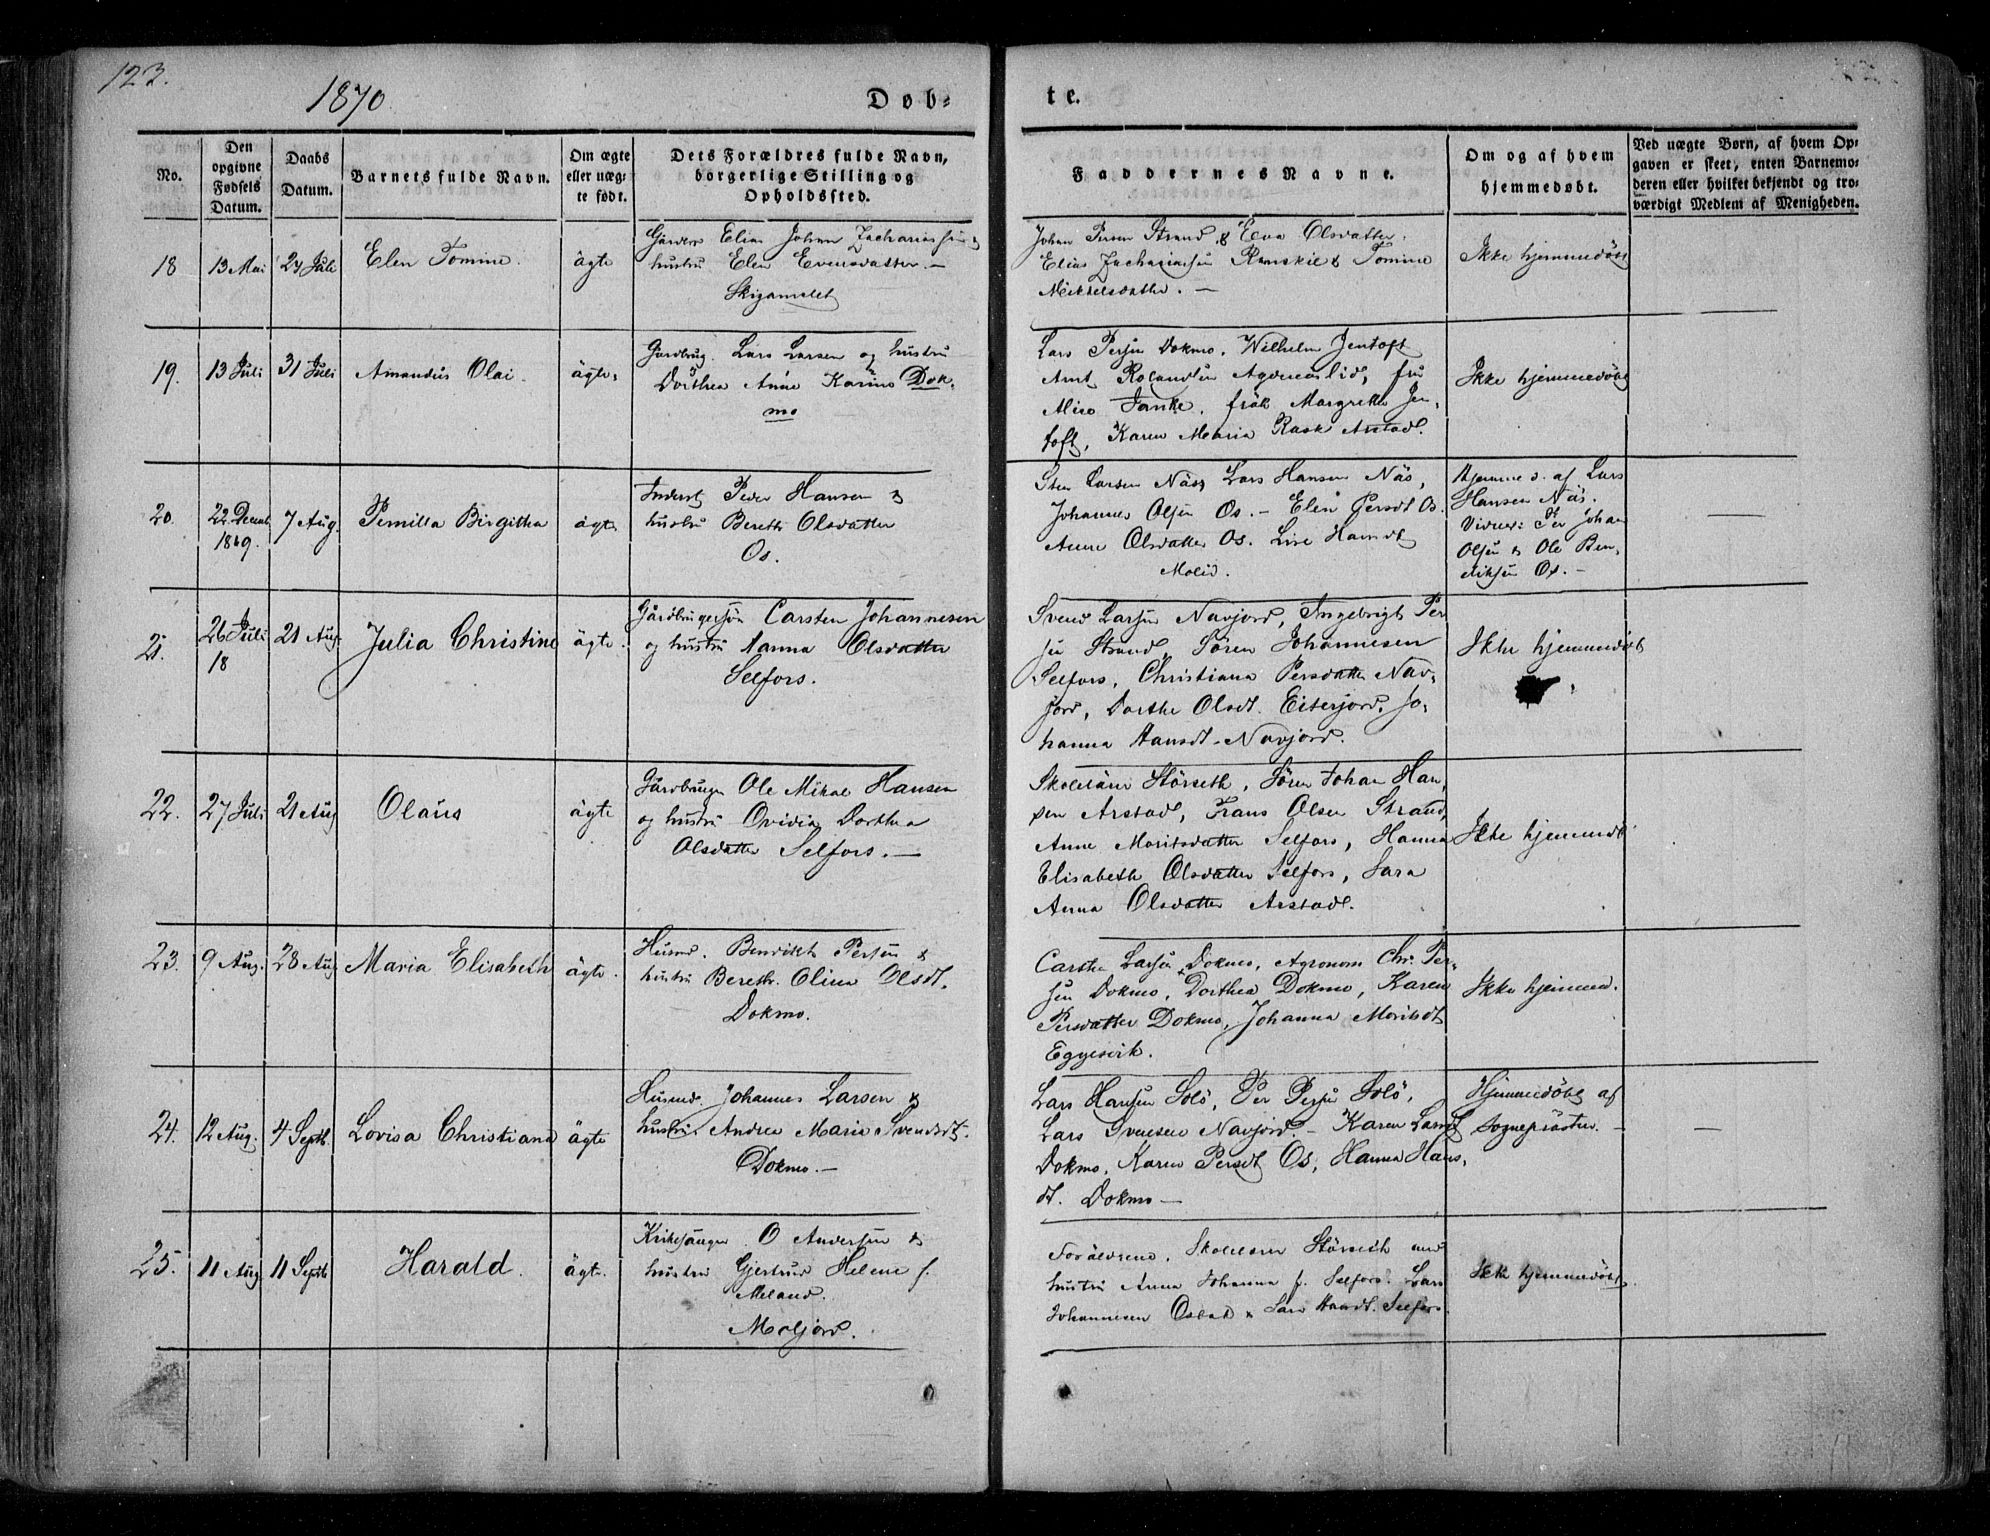 123.
1870
Døb-
te.
No.
Den opgivne Fødsels Datum.
Daabs Datum.
Barnets fulde Navn.
Om ægte eller uægte født.
Dets Forældres fulde Navn, borgerlige Stilling og Opholdssted.
Faddernes Navne.
Om og af hvem hjemmedøbt.
Ved uægte Børn, af hvem Opgaven er skeet, enten Barnemoderen eller hvilket bekjendt og troværdigt Medlem af Menigheden.
18
13 Mai
24 Juli
Elen Tomine.
ägte
Elias Johan Zachariassen &
hustru Elen Evensdatter. —
Skigamslet
Johan Persen Strand, & Eva Olsdatter.
Elias Zachariassen Ramskil & Tomine
Mikkelsdatter. —
Ikke hjemmedöbt
19.
13 Juli
31 Juli
Amandus Olai.
ägte.
Gårdbrug. Lars Larsen og hustru
Dorthea Anne Karine Dok-
mo
Lars Persen Dokmo, Wilhelm Jentoft
Arnt Rolandsen Agdenaslid, fru
Mico Janke, frök Margrethe Jen-
toft, Karen Maria Rask Arstad.
Ikke hjemmedöbt
20.
22 Decemb.
1869.
7 Aug.
Pernilla Birgitha
ägte
Inderst Peder Hansen &
hustru Bereth Olsdatter
Os.
Sten Larsen Näs, Lars Hansen Näs,
Johannes Olsen Os. — Elen Persdt Os.
Anne Olsdatter Os. Lise Hansdt
Molid.
Hjemme d. af Lars
Hansen Näs.
Vidner: Per Johan
Olsen & Ole Ben-
diksen Os. —
—
21.
26 Juli
18
21 Aug.
Julia Christine
ägte.
Gårdbrugersön Carsten Johannesen
og hustru Hanna Olsdatter
Selfors.
Svend Larsen Navjord, Ingebrigt Per
sen Strand, Sören Johannesen
Selfors, Christiana Persdatter Nav-
jord, Dorthe Olsdt. Eiterjord, Jo-
hanna Hansdt. Navjord.
Ikke hjemmedöbt
22.
27 Juli
21 Aug
Olaus
ägte
Gårdbruger Ole Mikal Hansen
og hustru Ovidia Dorthea
Olsdatter Selfors. —
Skolelärer Störseth, Sören Johan Han-
sen Arstad, Frans Olsen Strand,
Anne Moritsdatter Selfors, Hanna
Elisabeth Olsdatter Selfors, Sara
Anna Olsdatter Arstad.
Ikke hjemmedöbt
23.
9 Aug.
28 Aug
Maria Elisabeth
ägte.
Husmd. Bendikt Persen &
hustru Bereth Olina Olsdt.
Dokmo.
Carsten Larsen Dokmo, Agronom Chr. Per-
sen Dokmo, Dorthea Dokmo, Karen
Persdatter Dokmo, Johanna Moritsdt
Eggesvik.
Ikke hjemmed.
24.
12 Aug.
4 Septb.
Lovisa Christiana
ägte
Husmd. Johannes Larsen &
hustru Andrea Maria Svendsdt.
Dokmo. —
Lars Hansen Solö, Per Persen Solö,
Lars Svensen Navjord. — Karen Larsdt
Dokmo, Karen Persdt Os, Hanna Hans-
dt. Dokmo —
Hjemmedöbt af
Sogneprästen. —
—
25.
11 Aug.
11 Septb
Harald.
ägte.
Kirkesanger O Andersen &
hustru Gjertrud Helene f.
Meland.
Moljord.
Foräldrene, Skolelärer Störseth med
hustru Anna Johanna f. Selfors. Lars
Johannesen Osbak & Sara Hansdt. Selfors.
Ikke hjemmedöbt.